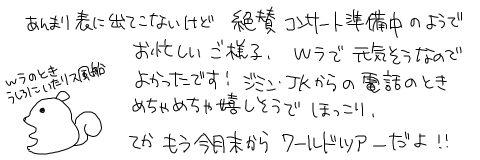 あんまり表に出てこないけど 絶賛 コンサート準備中のようで
お忙しいご様子、Wラで元気そうなので
よかったです! ジミン・JKからの電話のとき
めちゃめちゃ嬉しそうで ほっこり、
てか もう今月末から ワールドツアーだよ!!
Wラのとき
うしろにいたリス風船